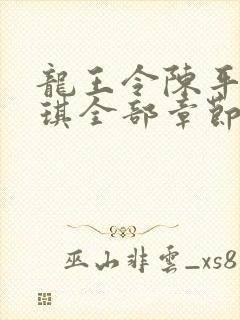 龍王令陳平
琪全部章節
巫山非雲_xs8